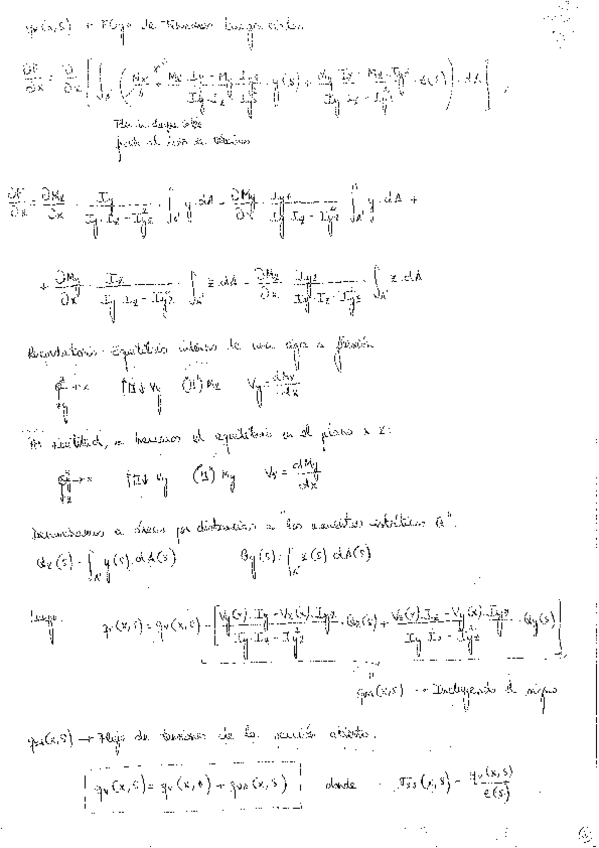 q_v(x,s) → Flujo de tensiones tangenciales
∂F/∂x = ∂/∂x [ ∫_A' ( N_x/A + (M_z·I_y − M_y·I_yz)/(I_y·I_z − I_yz²) · y(s) + (M_y·I_z − M_z·I_yz)/(I_y·I_z − I_yz²) · z(s) ) · dA ]
∂F/∂x = ∂M_z/∂x · I_y/(I_y·I_z − I_yz²) · ∫_A' y·dA − ∂M_y/∂x · I_yz/(I_y·I_z − I_yz²) ∫_A' y·dA +
+ ∂M_y/∂x · I_z/(I_y·I_z − I_yz²) · ∫_A' z·dA − ∂M_z/∂x · I_yz/(I_y·I_z − I_yz²) · ∫_A' z·dA
Recordatorio: Equilibrio interno de una viga a flexión
→x V_y M_z V_y = dM_z/dx
hacemos el equilibrio en el plano x z:
→x M_y dM_y/dx
Denominamos a áreas por distancias a "los momentos estáticos Q".
Q_z(s) = ∫_A' y(s)·dA(s) Q_y(s) = ∫_A' z(s) dA(s)
Luego: q_v(x,s) = q_v(x,s) − [ (V_y(x)·I_y − V_z(x)·I_yz)/(I_y·I_z − I_yz²) · Q_z(s) + (V_z(x)·I_z − V_y(x)·I_yz)/(I_y·I_z − I_yz²) · Q_y(s) ]
q_va(x,s) → Incluyendo el signo
q_va(x,s) → Flujo de tensiones de la sección abierta.
q_v(x,s) = q_v(x,0) + q_va(x,s) donde (x,s) = q_v(x,s)/e(s)